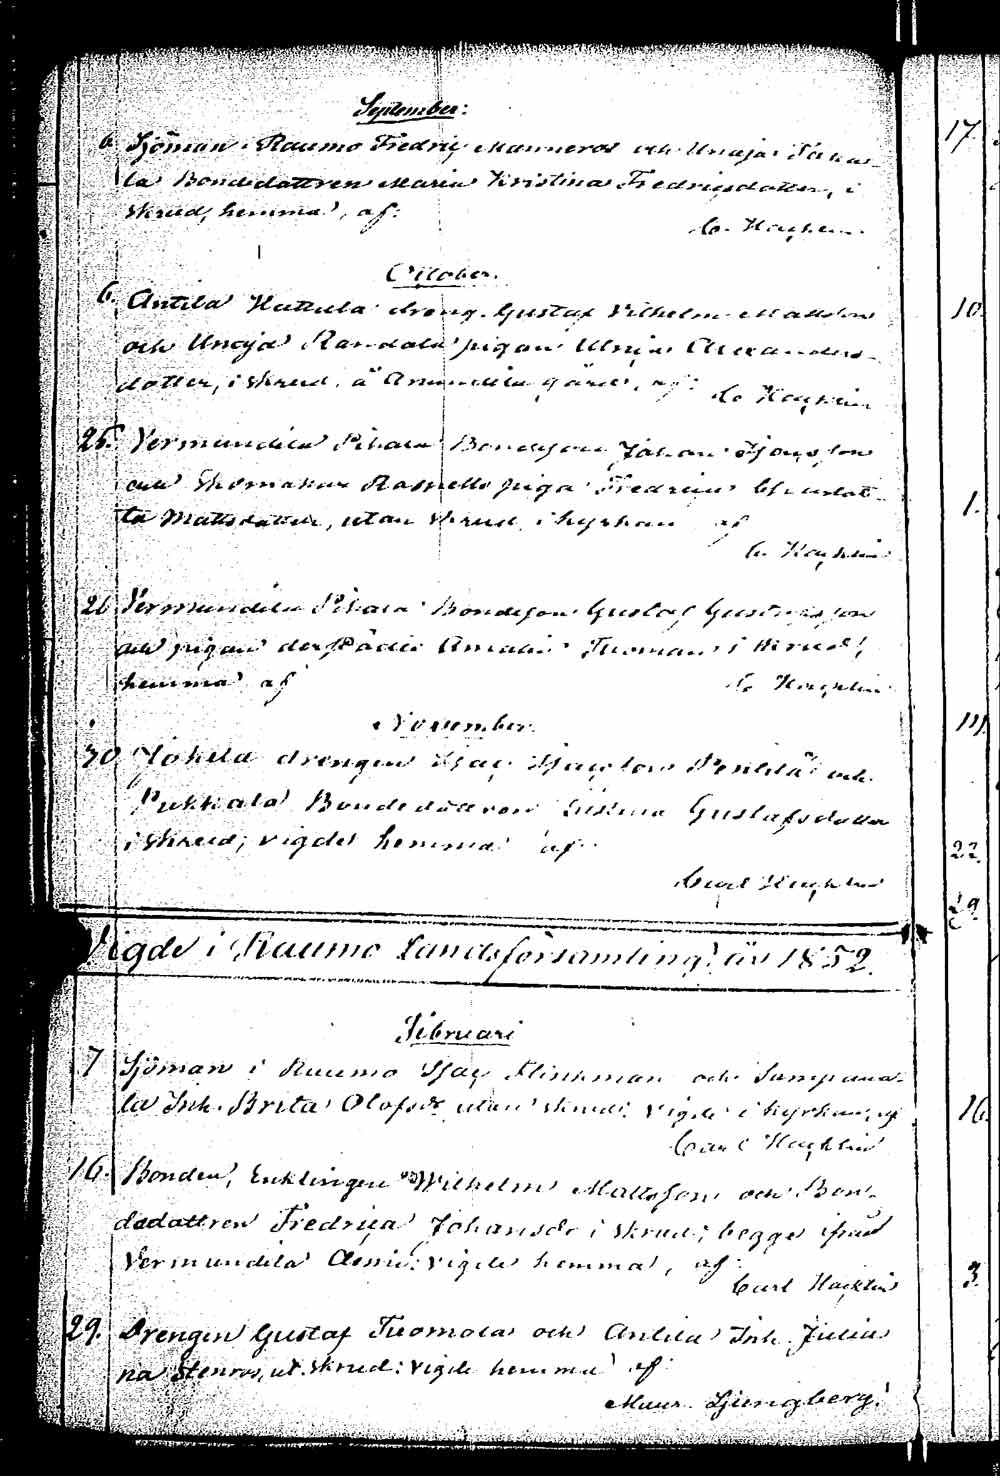 September:
6. Sjöman i Raumo Fredric Manneros och Unaja
la Bondedottren Maria Kristina Fredricsdotter, i
skrud, hemma, af:
C. Hacklin
October.
6. Antila Hattula dreng Gustaf Vilhelm Mattsson
och Unaja Randala pigan Alexanders-
dotter, i skrud, å gård, af:
C. Hacklin
25. Vermundila Pihala Bondeson Johan
och Skomakar piga Fredrica Charlot-
ta Mattsdotter, utan skrud, i kyrkan af
C. Hacklin
26 Vermundila Pihala Bondeson Gustaf Gustafsson
och pigan Amalia Tuomas i skrud,
hemma af
C. Hacklin
November.
30 Jokela drengen Isac Isacsson Penttilä och
Pukkala Bondedottren Gustafsdotter
i skrud; vigde hemma af
Carl Hacklin
Vigde i Raumo Landsförsamling år 1852.
Februari
7 Sjöman i Raumo Isac Flinkman och Sampaana-
la Inh. Brita Olofsdr utan skrud; vigde i kyrkan, af
Carl Hacklin
16. Bonden, Enklingen Wilhelm Mattsson och Bon-
dedottren Fredrica Johansdr i skrud; begge ifrån
Vermundila vigde hemma, af
Carl Hacklin
29. Drengen Gustaf Tuomola och Antila Inh. Julia-
na Stenros, ut. skrud: vigde hemma af
Maur. Ljungberg.
17.
10.
1.
22.
29.
16.
3.